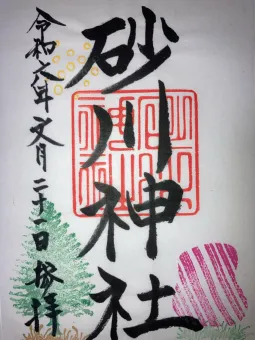 砂川神社
令和六年文月二十一日参拝